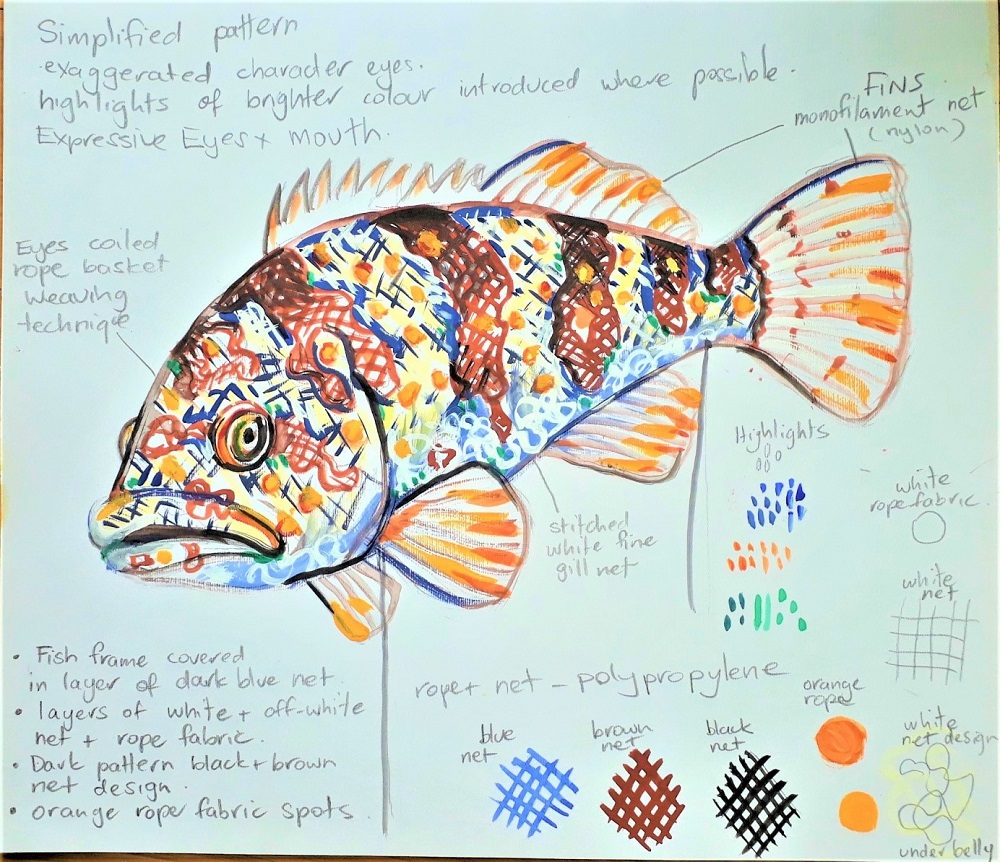 Simplified pattern
exaggerated character eyes.
highlights of brighter colour introduced where possible.
Expressive Eyes + mouth.
FINS
monofilament net
(nylon)
Eyes coiled
rope basket
weaving
technique
stitched
white fine
gill net
Highlights
white
rope fabric.
white
net
• Fish frame covered
in layer of dark blue net.
• layers of white + off-white
net + rope fabric.
• Dark pattern black + brown
net design.
• orange rope fabric spots.
rope + net - polypropylene
blue
net
brown
net
black
net
orange
rope
white
net design
under belly